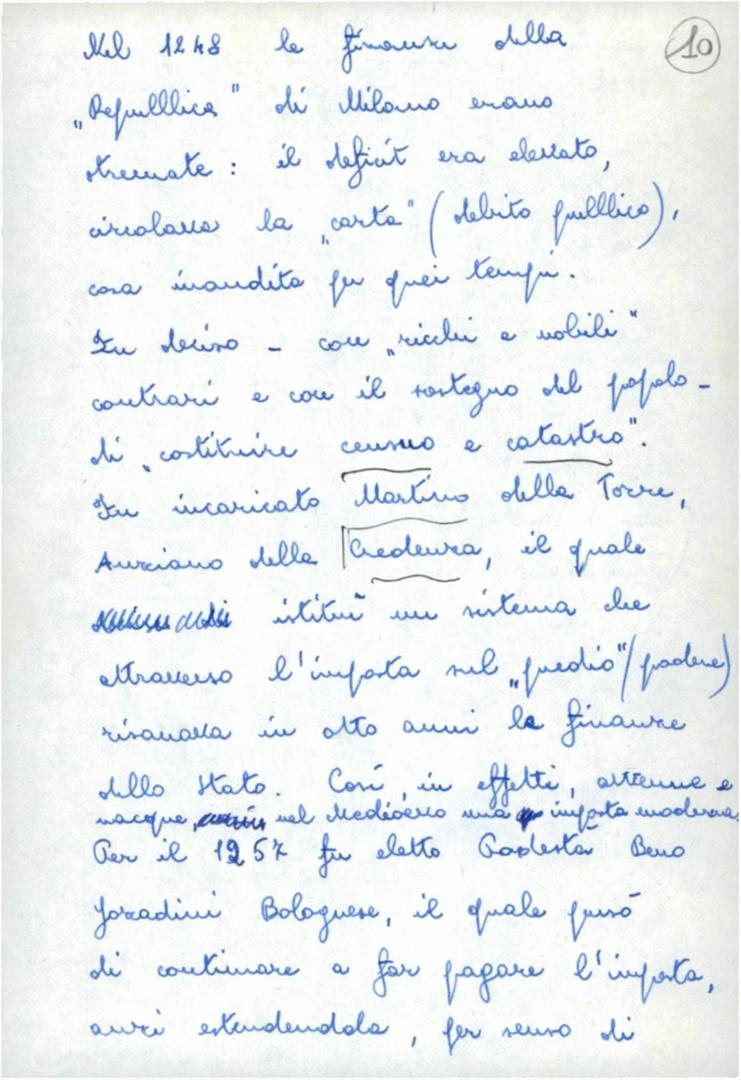 10
Nel 1248 le finanze della
„Repubblica" di Milano erano
stremate: il deficit era elevato,
circolava la „carta" (debito pubblico),
cosa inaudita per quei tempi.
Fu deciso - con „ricchi e nobili"
contrari e con il sostegno del popolo -
di „costituire censuo e catastro".
Fu incaricato Martino della Torre,
Anziano della Credenza, il quale
istituì un sistema che
attraverso l'imposta sul „predio" (podere)
risanava in otto anni le finanze
dello Stato. Così, in effetti, avvenne e
nacque, nel Medioevo una imposta moderna.
Per il 1257 fu eletto Podestà Beno
Gozadini Bolognese, il quale pensò
di continuare a far pagare l'imposta,
anzi estendendola, per senso di